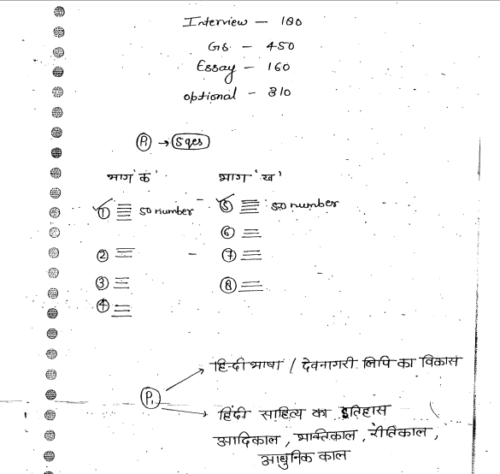 Interview - 180
GS. - 450
Essay - 160
optional - 310
P₁ → 5 ques
भाग 'क' भाग 'ख'
① 50 number ⑤ 50 number
⑥
② - ⑦
③
④ ⑧
हिन्दी भाषा / देवनागरी लिपि का विकास
P₁
हिंदी साहित्य का इतिहास
आदिकाल, भक्तिकाल, रीतिकाल,
आधुनिक काल